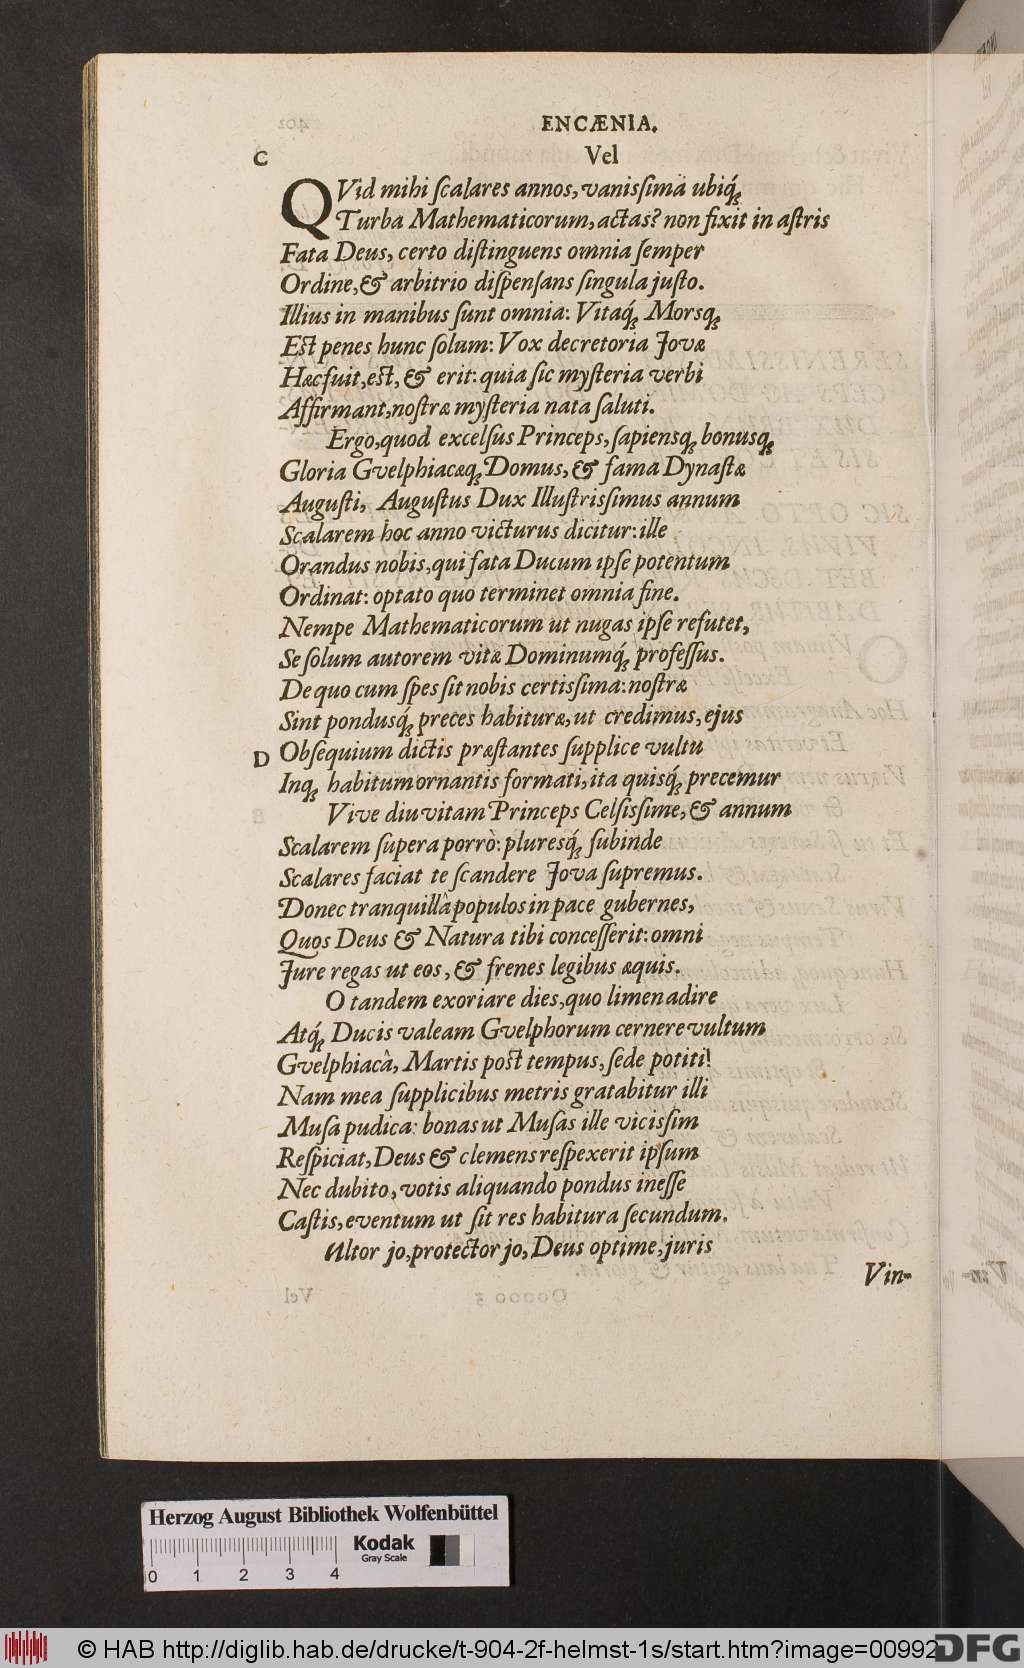 ENCÆNIA.
C
Vel
QVid mihi ſcalares annos, vanisſima ubiq́;
Turba Mathematicorum, actas? non fixit in aſtris
Fata Deus, certo diſtinguens omnia ſemper
Ordine, & arbitrio diſpenſans ſingula juſto.
Illius in manibus ſunt omnia: Vitaq́; Morsq;
Eſt penes hunc ſolum: Vox decretoria Jovæ
Hæc fuit, eſt, & erit: quia ſic myſteria verbi
Affirmant, noſtræ myſteria nata ſaluti.
Ergo, quod excelſus Princeps, ſapiensq; bonusq;
Gloria Gvelphiacæq; Domus, & fama Dynaſtæ
Auguſti, Auguſtus Dux Illuſtrisſimus annum
Scalarem hoc anno victurus dicitur: ille
Orandus nobis, qui fata Ducum ipſe potentum
Ordinat: optato quo terminet omnia fine.
Nempe Mathematicorum ut nugas ipſe refutet,
Se ſolum autorem vitæ Dominumq́; profeſſus.
De quo cum ſpes ſit nobis certisſima: noſtræ
Sint pondusq́; preces habituræ, ut credimus, ejus
D Obſequium dictis præſtantes ſupplice vultu
Inq; habitum ornantis formati, ita quisq́; precemur
Vive diu vitam Princeps Celſisſime, & annum
Scalarem ſupera porrò: pluresq́; ſubinde
Scalares faciat te ſcandere Jova ſupremus.
Donec tranquillâ populos in pace gubernes,
Quos Deus & Natura tibi conceſſerit: omni
Jure regas ut eos, & frenes legibus æquis.
O tandem exoriare dies, quo limen adire
Atq́; Ducis valeam Gvelphorum cernere vultum
Gvelphiacâ, Martis poſt tempus, ſede potiti!
Nam mea ſupplicibus metris gratabitur illi
Muſa pudica: bonas ut Muſas ille vicisſim
Reſpiciat, Deus & clemens reſpexerit ipſum
Nec dubito, votis aliquando pondus ineſſe
Caſtis, eventum ut ſit res habitura ſecundum.
Ultor jo, protector jo, Deus optime, juris
Vin-
Herzog August Bibliothek Wolfenbüttel
Kodak
Gray Scale
0 1 2 3 4
© HAB http://diglib.hab.de/drucke/t-904-2f-helmst-1s/start.htm?image=00992
DFG